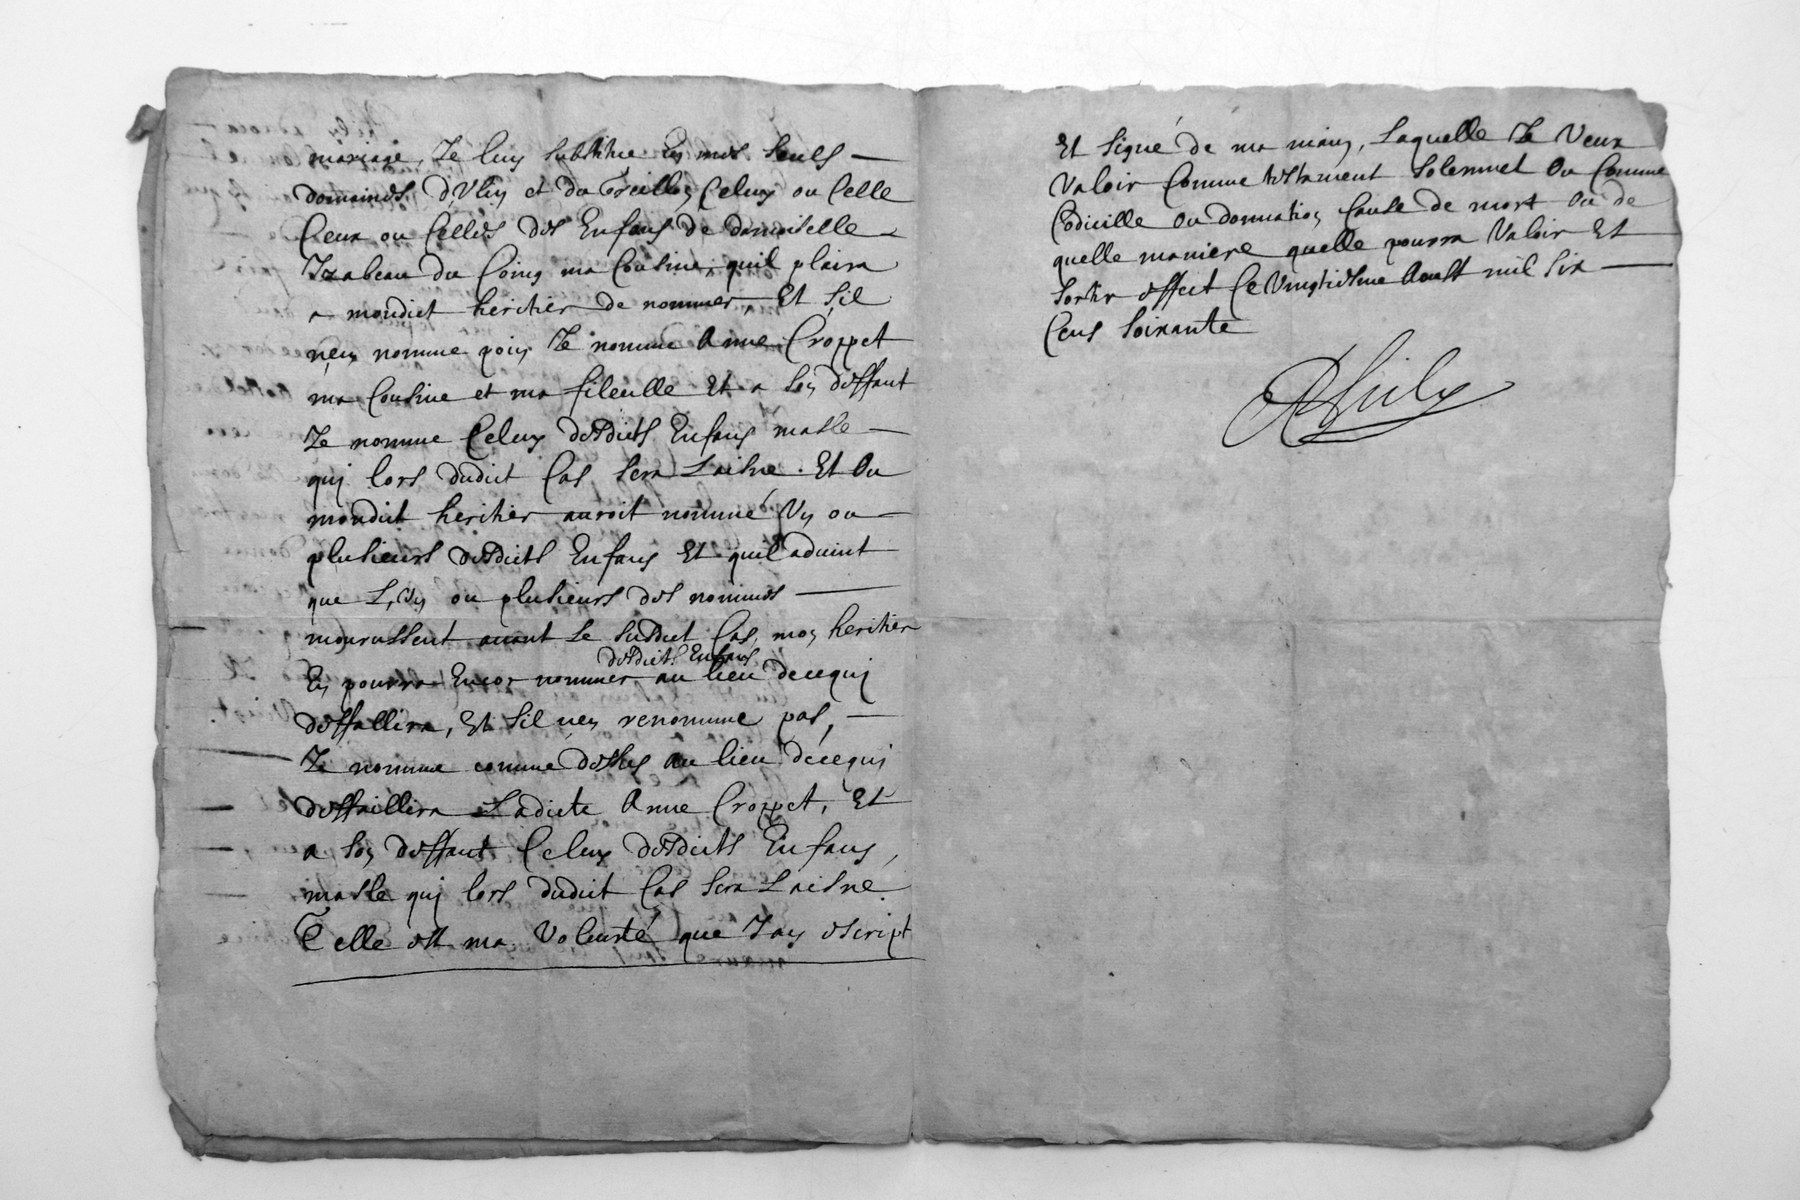 mariage, Je luy substitue en mes seuls
domaines d'Vlin et du Creillon Celuy ou Celle
Ceux ou Celles des Enfans de damoiselle
Izabeau du Coing ma Cousine, quil plaira
a mondict heritier de nommer, Et sil
n'en nomme poin Je nomme Anne Croppet
ma Cousine et ma filleulle Et a son deffaut
Je nomme Celuy desdicts Enfans masle
quj lors dudict Cas sera Laisne. Et Ou
mondict heritier auroit nommé Vn ou
plusieurs desdicts Enfans Et quil aduint
que L'vn ou plusieurs des nommés
mourussent auant le susdict Cas, mon heritier
desdicts Enfans
En pourra Encor nommer au lieu decequj
deffallira, Et sil nen renomme pas,
Je nomme comme dessus au lieu decequi
deffaillira Ladicte Anne Croppet, Et
a son deffaut Celuy desdicts Enfans,
masle quj lors dudict Cas sera Laisne.
Telle est ma Volonté que Jay escript
Et signé de ma main, Laquelle Je Veux
Valoir Comme testament solemnel Ou Comme
Codicille Ou donnation Cause de mort Ou de
quelle maniere quelle pourra Valoir Et
sortir effect Ce Vingtiesme Aoust mil six
Cens soixante